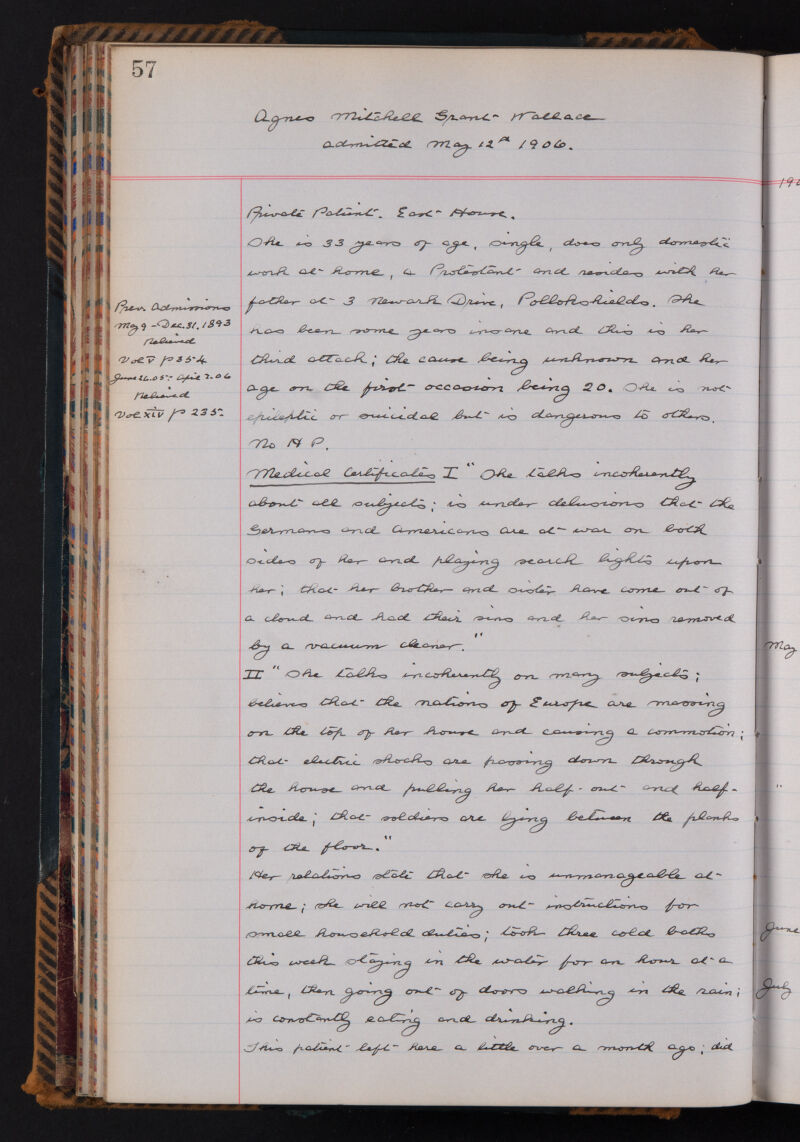 57
Agnes Mitchell Grant Wallace
admitted May 12th 1906.
Private Patient. East House.
She is 33 years of age, single, does only domestic
work at home, a Protestant and resides with her
father at 3 Newark Drive, Pollokshields. She
has been some years insane and this is her
third attack; the cause being unknown and her
age on the first occasion being 20. She is not
epileptic or suicidal but is dangerous to others.
No H P.
Prev. Admissions
May 9 - Dec. 31. 1893
Relieved
Vol V p 354
June 26.05 - April 2.06
Relieved
Vol XLV p 235.
Medical Certificates I " She talks incoherently
about all subjects; is under delusions that the
Germans and Americans are at war on both
sides of her and playing search lights upon
her; that her brother and sister have come out of
a cloud and had their sins and her sins removed
by a vacuum cleaner."
II " She talks incoherently on many subjects;
believes that the nations of Europe are massing
on the top of her house and causing a commotion;
that electric shocks are passing down through
the house and pulling her half-out and half-
inside; that soldiers are lying between the planks
of the floor."
Her relations state that she is unmanageable at
home; she will not carry out instructions for
small household duties; took three cold baths
this week staying in the water for an hour at a
time, then going out of doors walking in the rain;
is constantly eating and drinking.
This patient left here a little over a month ago; did
190
May
"
June
July